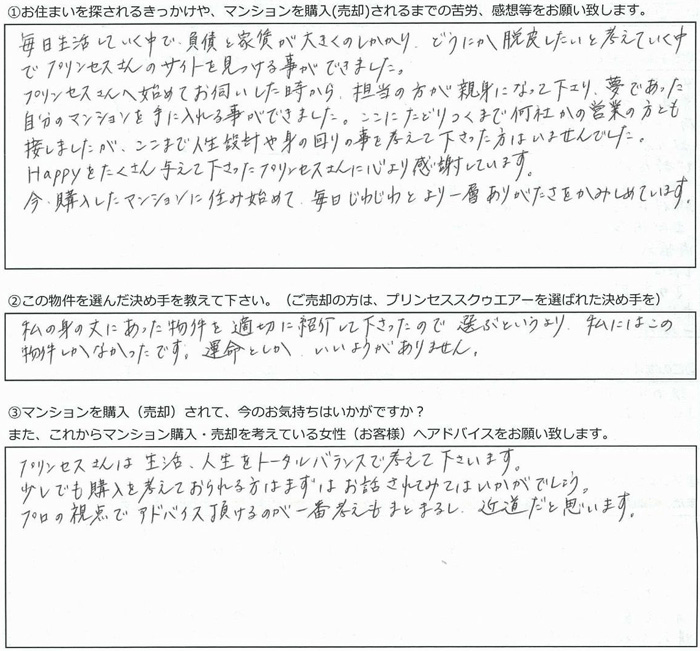 ①お住まいを探されるきっかけや、マンションを購入(売却)されるまでの苦労、感想等をお願い致します。
毎日生活していく中で、負債と家賃が大きくのしかかり、どうにか脱戻したいと考えていく中
でプリンセスさんのサイトを見つける事ができました。
プリンセスさんへ始めてお伺いした時から、担当の方が親身になって下さり、夢であった
自分のマンションを手に入れる事ができました。ここにたどりつくまで何社かの営業の方とも
接しましたが、ここまで人生設計や身の回りの事を考えて下さった方はいませんでした。
Happyをたくさん与えて下さったプリンセスさんに心より感謝しています。
今、購入したマンションに住み始めて、毎日じわじわとより一層ありがたさをかみしめています。
②この物件を選んだ決め手を教えて下さい。（ご売却の方は、プリンセススクゥエアーを選ばれた決め手を）
私の身の丈にあった物件を適切に紹介して下さったので選ぶというより、私にはこの
物件しかなかったです。運命としか、いいようがありません。
③マンションを購入（売却）されて、今のお気持ちはいかがですか？
また、これからマンション購入・売却を考えている女性（お客様）へアドバイスをお願い致します。
プリンセスさんは生活、人生をトータルバランスで考えて下さいます。
少しでも購入を考えておられる方はまずはお話されてみてはいかがでしょう。
プロの視点でアドバイス頂けるのが一番考えもまとまるし、近道だと思います。